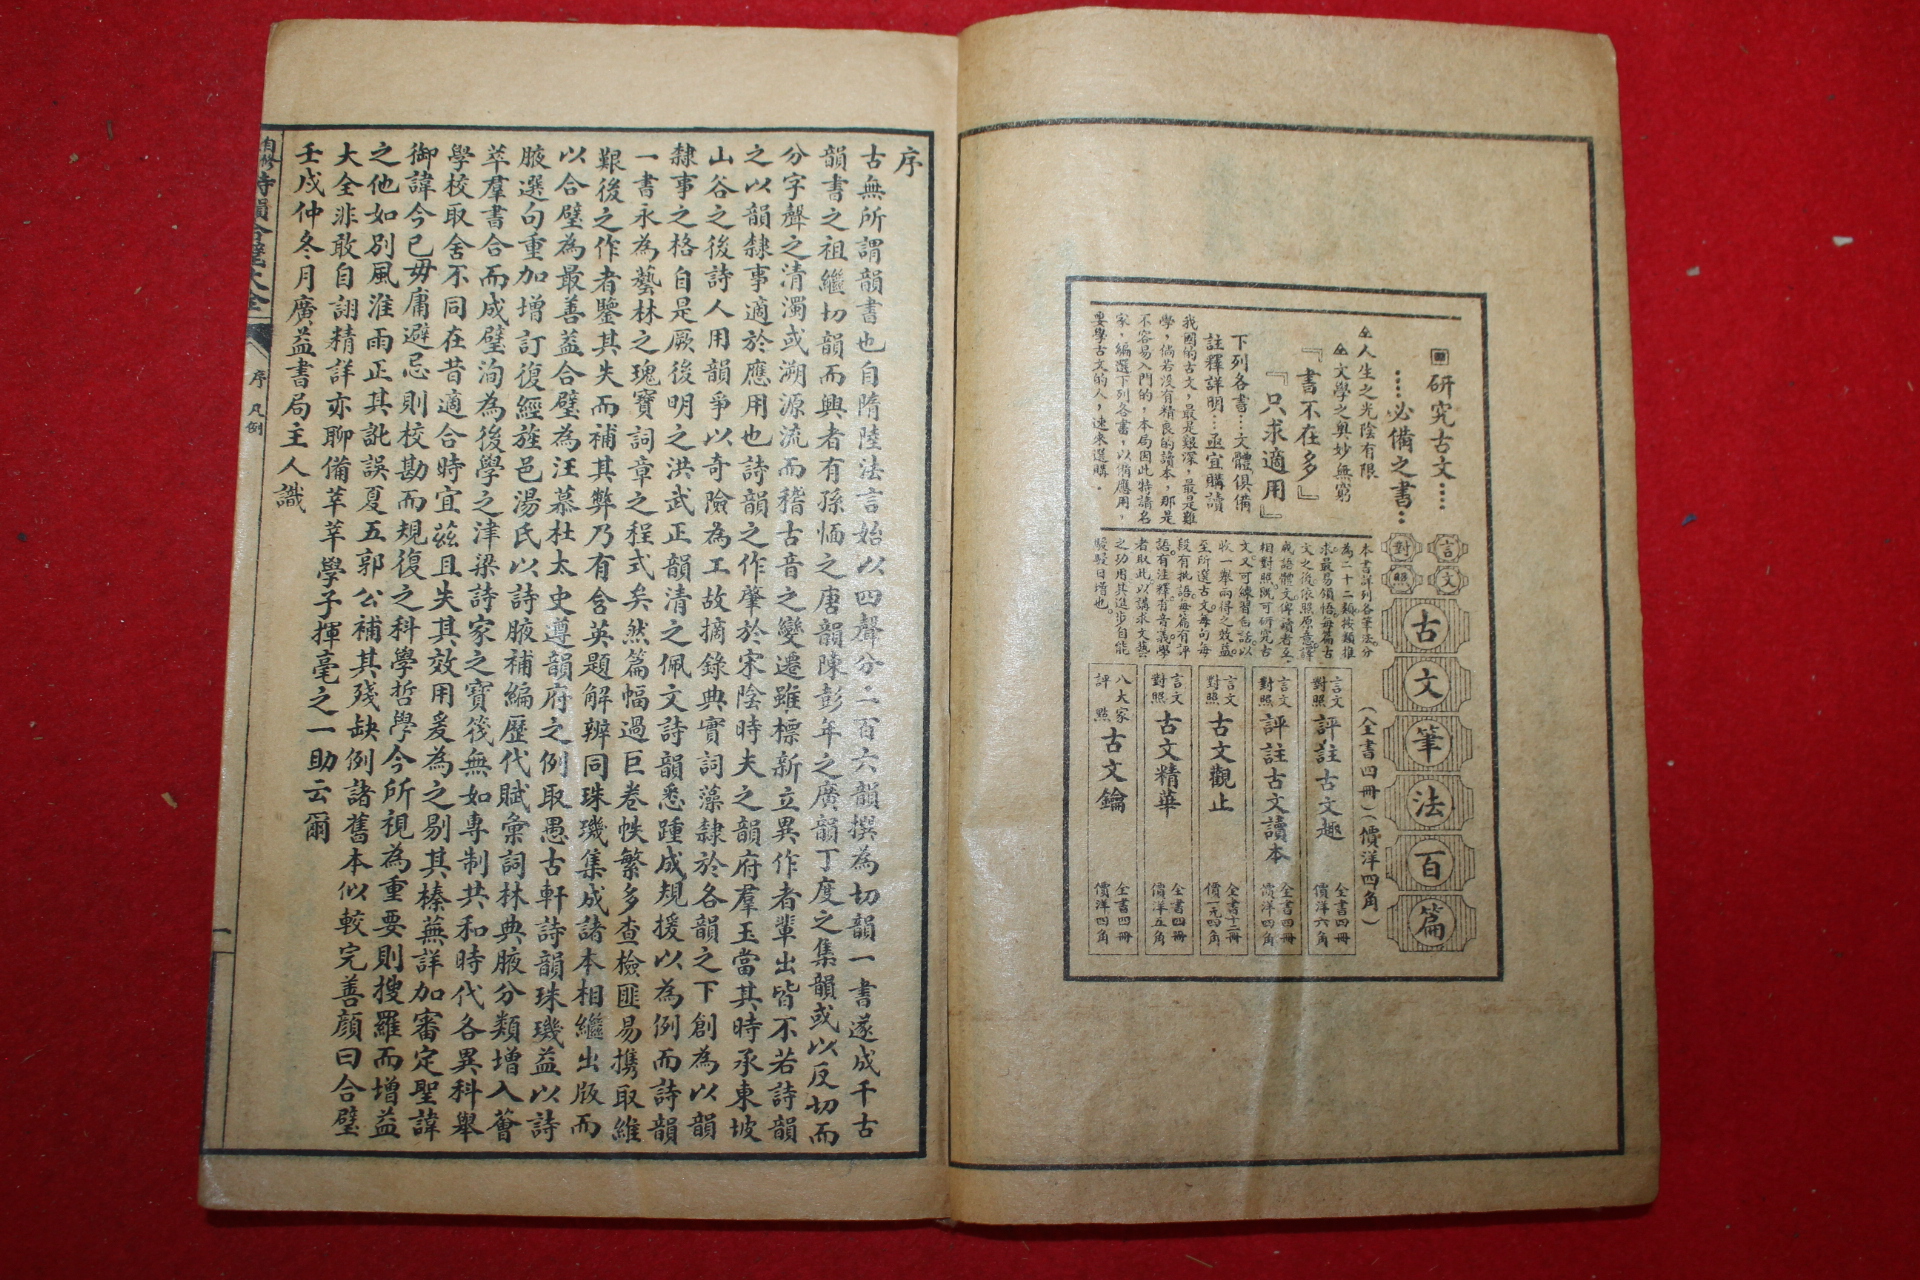 研究古文⋯⋯
⋯⋯必備之書⋯
人生之光陰有限
文學之奧妙無窮
『書不在多』
『只求適用』
下列各書⋯文體俱備
註釋詳明⋯亟宜購讀
我國的古文，最是艱深，最是難
學，倘若沒有精良的讀本，那是
不容易入門的，本局因此特請名
家，編選下列各書，以備應用，
要學古文的人，速來選購．
言文
對照
古文筆法百篇
本書詳列各筆法。分
為二十二類按類推
求最易領悟每篇古
文之後依照原意譯
成語體文俾讀者互
相對照既可研究古
文又可練習白話以
收一舉兩得之效益
至所選古文每句每
段有批語每篇有評
語有注釋有音義學
者取此以講求文藝
之功用其進步自能
駸駸日增也。
（全書四冊）（價洋四角）
言文對照 評註古文趣 全書四冊 價洋六角
言文對照 評註古文讀本 全書四冊 價洋四角
言文對照 古文觀止 全書十二冊 價一元四角
言文對照 古文精華 全書四冊 價洋五角
八大家評點 古文鑰 全書四冊 價洋四角
序
古無所謂韻書也自隋陸法言始以四聲分二百六韻撰為切韻一書遂成千古
韻書之祖繼切韻而興者有孫愐之唐韻陳彭年之廣韻丁度之集韻或以反切而
分字聲之清濁或溯源流而稽古音之變遷雖標新立異作者輩出皆不若詩韻
之以韻隸事適於應用也詩韻之作肇於宋陰時夫之韻府羣玉當其時承東坡
山谷之後詩人用韻爭以奇險為工故摘錄典實詞藻隸於各韻之下創為以韻
隸事之格自是厥後明之洪武正韻清之佩文詩韻悉踵成規援以為例而詩韻
一書永為藝林之瑰寶詞章之程式矣然篇幅過巨卷帙繁多查檢匪易攜取維
艱後之作者鑒其失而補其弊乃有含英題解辨同珠璣集成諸本相繼出版而
以合璧為最善蓋合璧為汪慕杜太史遵韻府之例取愚古軒詩韻珠璣益以詩
腋選句重加增訂復經旌邑湯氏以詩腋補編歷代賦彙詞林典腋分類增入薈
萃羣書合而成璧洵為後學之津梁詩家之寶筏無如專制共和時代各異科舉
學校取舍不同在昔適合時宜茲且失其效用爰為之剔其榛蕪詳加審定聖諱
御諱今已毋庸避忌則校勘而規復之科學哲學今所視為重要則搜羅而增益
之他如別風淮雨正其訛誤夏五郭公補其殘缺例諸舊本似較完善顏曰合璧
大全非敢自詡精詳亦聊備莘莘學子揮毫之一助云爾
壬戌仲冬月廣益書局主人識
詩韻合璧大全
序 凡例
一